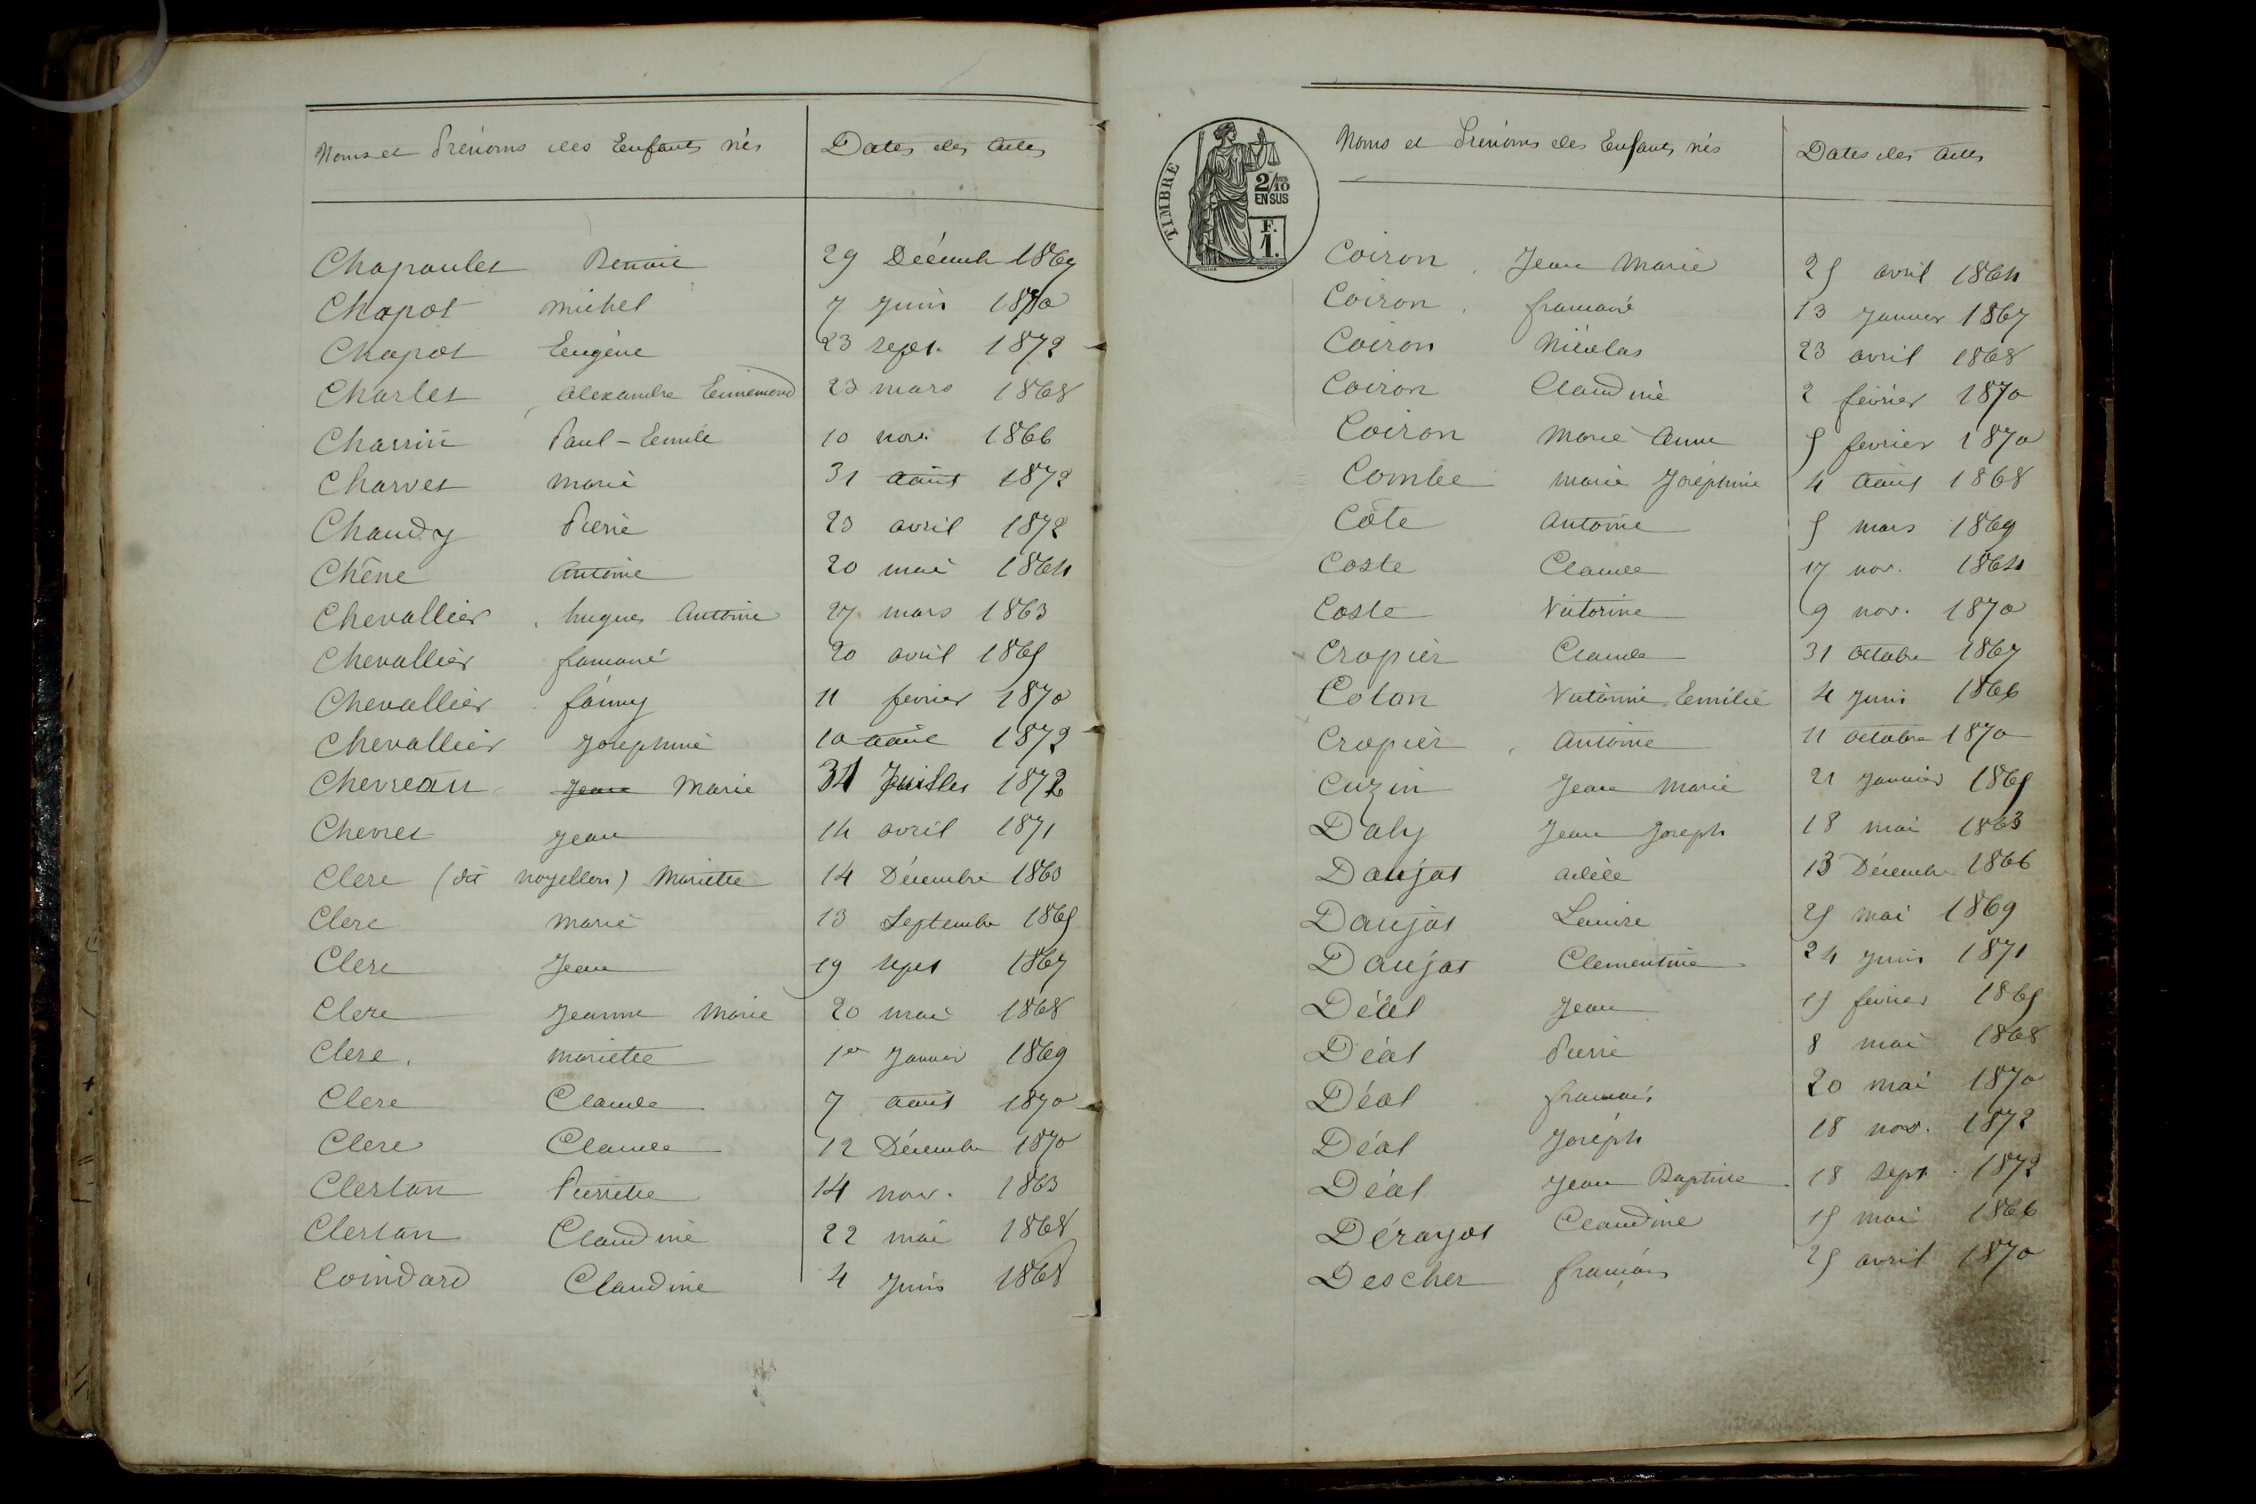 Noms et Prénoms des Enfants nés Dates des Actes
Chapoulet Benoit 29 Décemb 1869
Chapot michel 7 Juin 1870
Chapot Eugène 23 sept. 1872
Charlet Alexandre Ennemond 23 mars 1868
Charrin Paul-Emile 10 nov. 1866
Charvet marie 31 août 1872
Chaudy Pierre 23 avril 1872
Chêne Antoine 20 mai 1864
Chevallier hugues Antoine 27 mars 1863
Chevallier francois 20 avril 1865
Chevallier fanny 11 fevrier 1870
Chevallier Josephine 10 août 1872
Chevreau Jean Marie 31 Juillet 1872
Chevret Jean 14 avril 1871
Clerc (dit noyellon) Mariette 14 Décembre 1863
Clerc Marie 13 Septembre 1865
Clerc Jean 19 sept 1867
Clerc Jeanne Marie 20 mai 1868
Clerc. mariette 1er Janvier 1869
Clerc Claude 7 août 1870
Clerc Claude 12 Décembre 1870
Clerlan Pierrette 14 nov. 1863
Clerlan Claudine 22 mai 1868
Coindard Claudine 4 Juin 1868
TIMBRE
2/10
EN SUS
F.
1.
Noms et Prénoms des Enfants nés Dates des Actes
Coiron Jean Marie 25 avril 1864
Coiron francois 13 Janvier 1867
Coiron Nicolas 23 avril 1868
Coiron Claudine 2 février 1870
Coiron Marie Anne 5 fevrier 1870
Combe marie Joséphine 4 Août 1868
Côte Antoine 5 mars 1869
Coste Claude 17 nov. 1864
Coste Victorine 9 nov. 1870
Cropier Claude 31 octobre 1867
Cotan Victorine Emilie 4 Juin 1866
Cropier Antoine 11 octobre 1870
Cuzin Jean Marie 21 Janvier 1865
Daly Jean Joseph 18 mai 1863
Daujat Adèle 13 Décembre 1866
Daujat Louise 25 mai 1869
Daujat Clementine 24 Juin 1871
Déal Jean 15 fevrier 1865
Déal Pierre 8 mai 1868
Déal francois 20 mai 1870
Déal Joséph 18 nov. 1872
Déal Jean Baptiste 18 sept. 1872
Dérayot Claudine 15 mai 1866
Descher françois 25 avril 1870